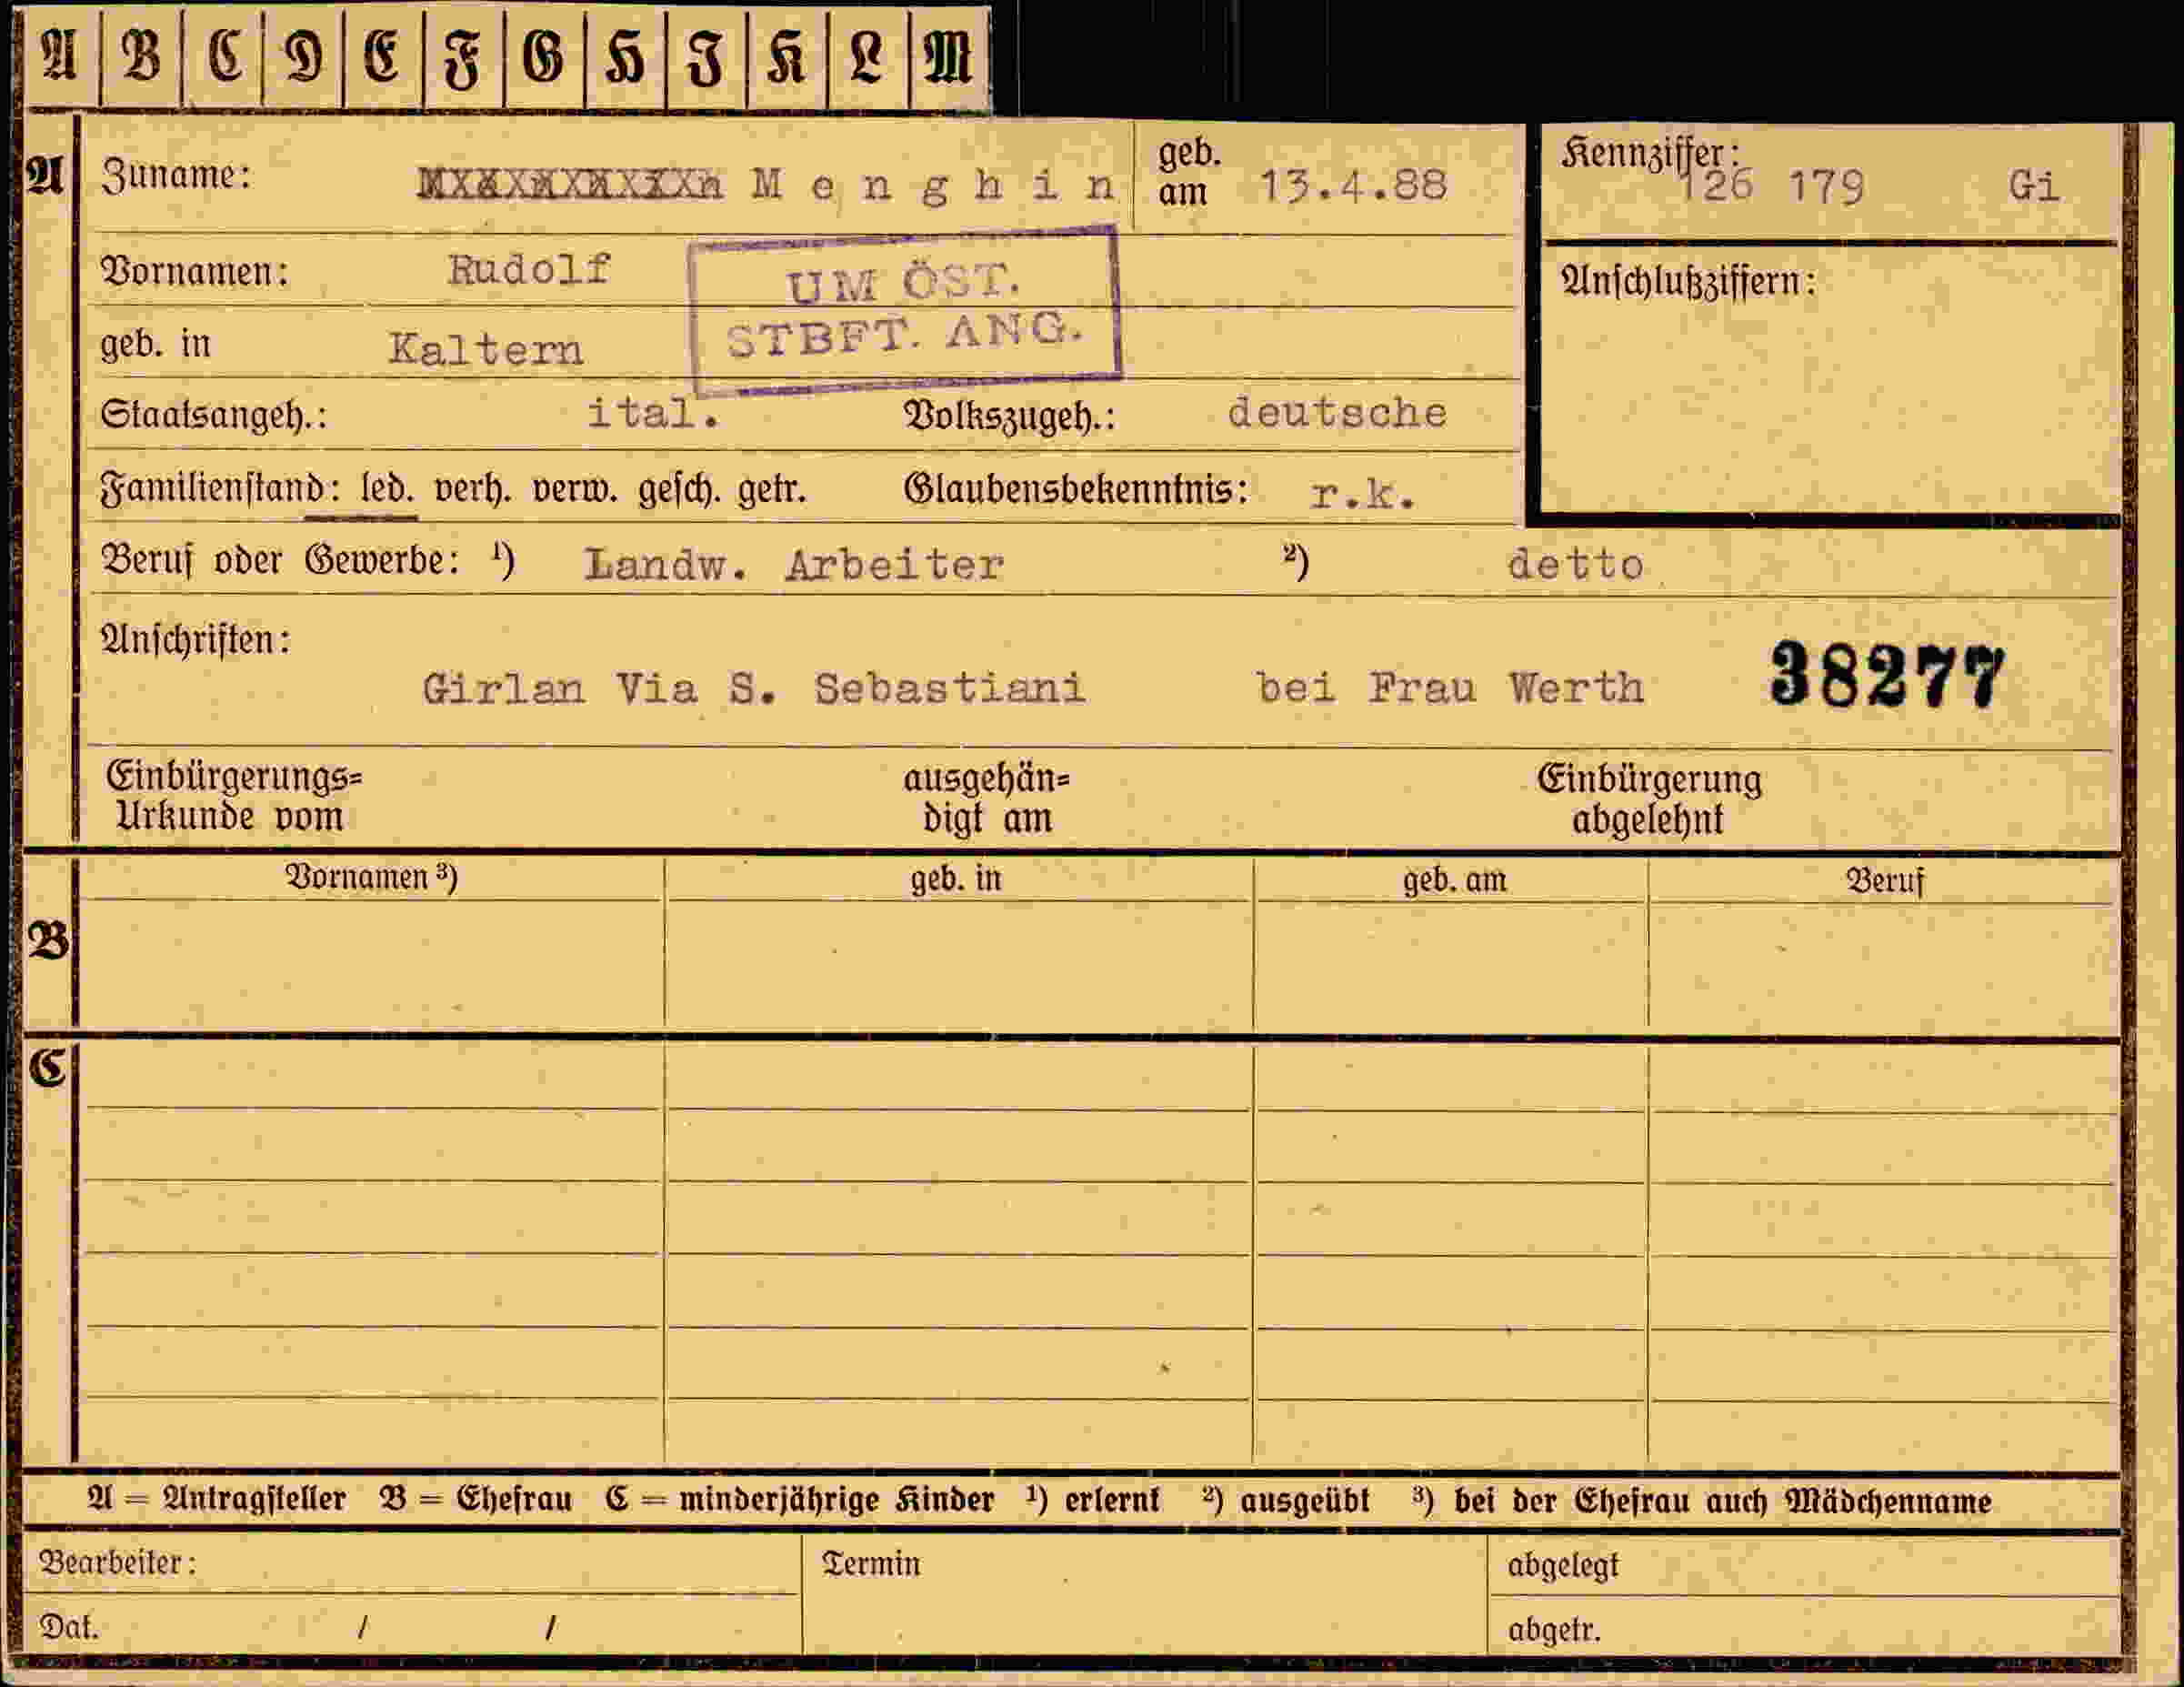 A B C D E F G H I K L M
A Zuname: Menghin geb. am 13.4.88 Kennziffer: 126 179 Gi
Vornamen: Rudolf
UM ÖST.
STBFT. ANG.
Anschlußziffern:
geb. in Kaltern
Staatsangeh.: ital. Volkszugeh.: deutsche
Familienstand: led. verh. verw. gesch. getr. Glaubensbekenntnis: r.k.
Beruf oder Gewerbe: ¹) Landw. Arbeiter ²) detto
Anschriften:
Girlan Via S. Sebastiani bei Frau Werth 38277
Einbürgerungs= ausgehän= Einbürgerung
Urkunde vom digt am abgelehnt
Vornamen ³) geb. in geb. am Beruf
B
C
A = Antragsteller B = Ehefrau C = minderjährige Kinder ¹) erlernt ²) ausgeübt ³) bei der Ehefrau auch Mädchenname
Bearbeiter: Termin abgelegt
Dat. / / abgetr.